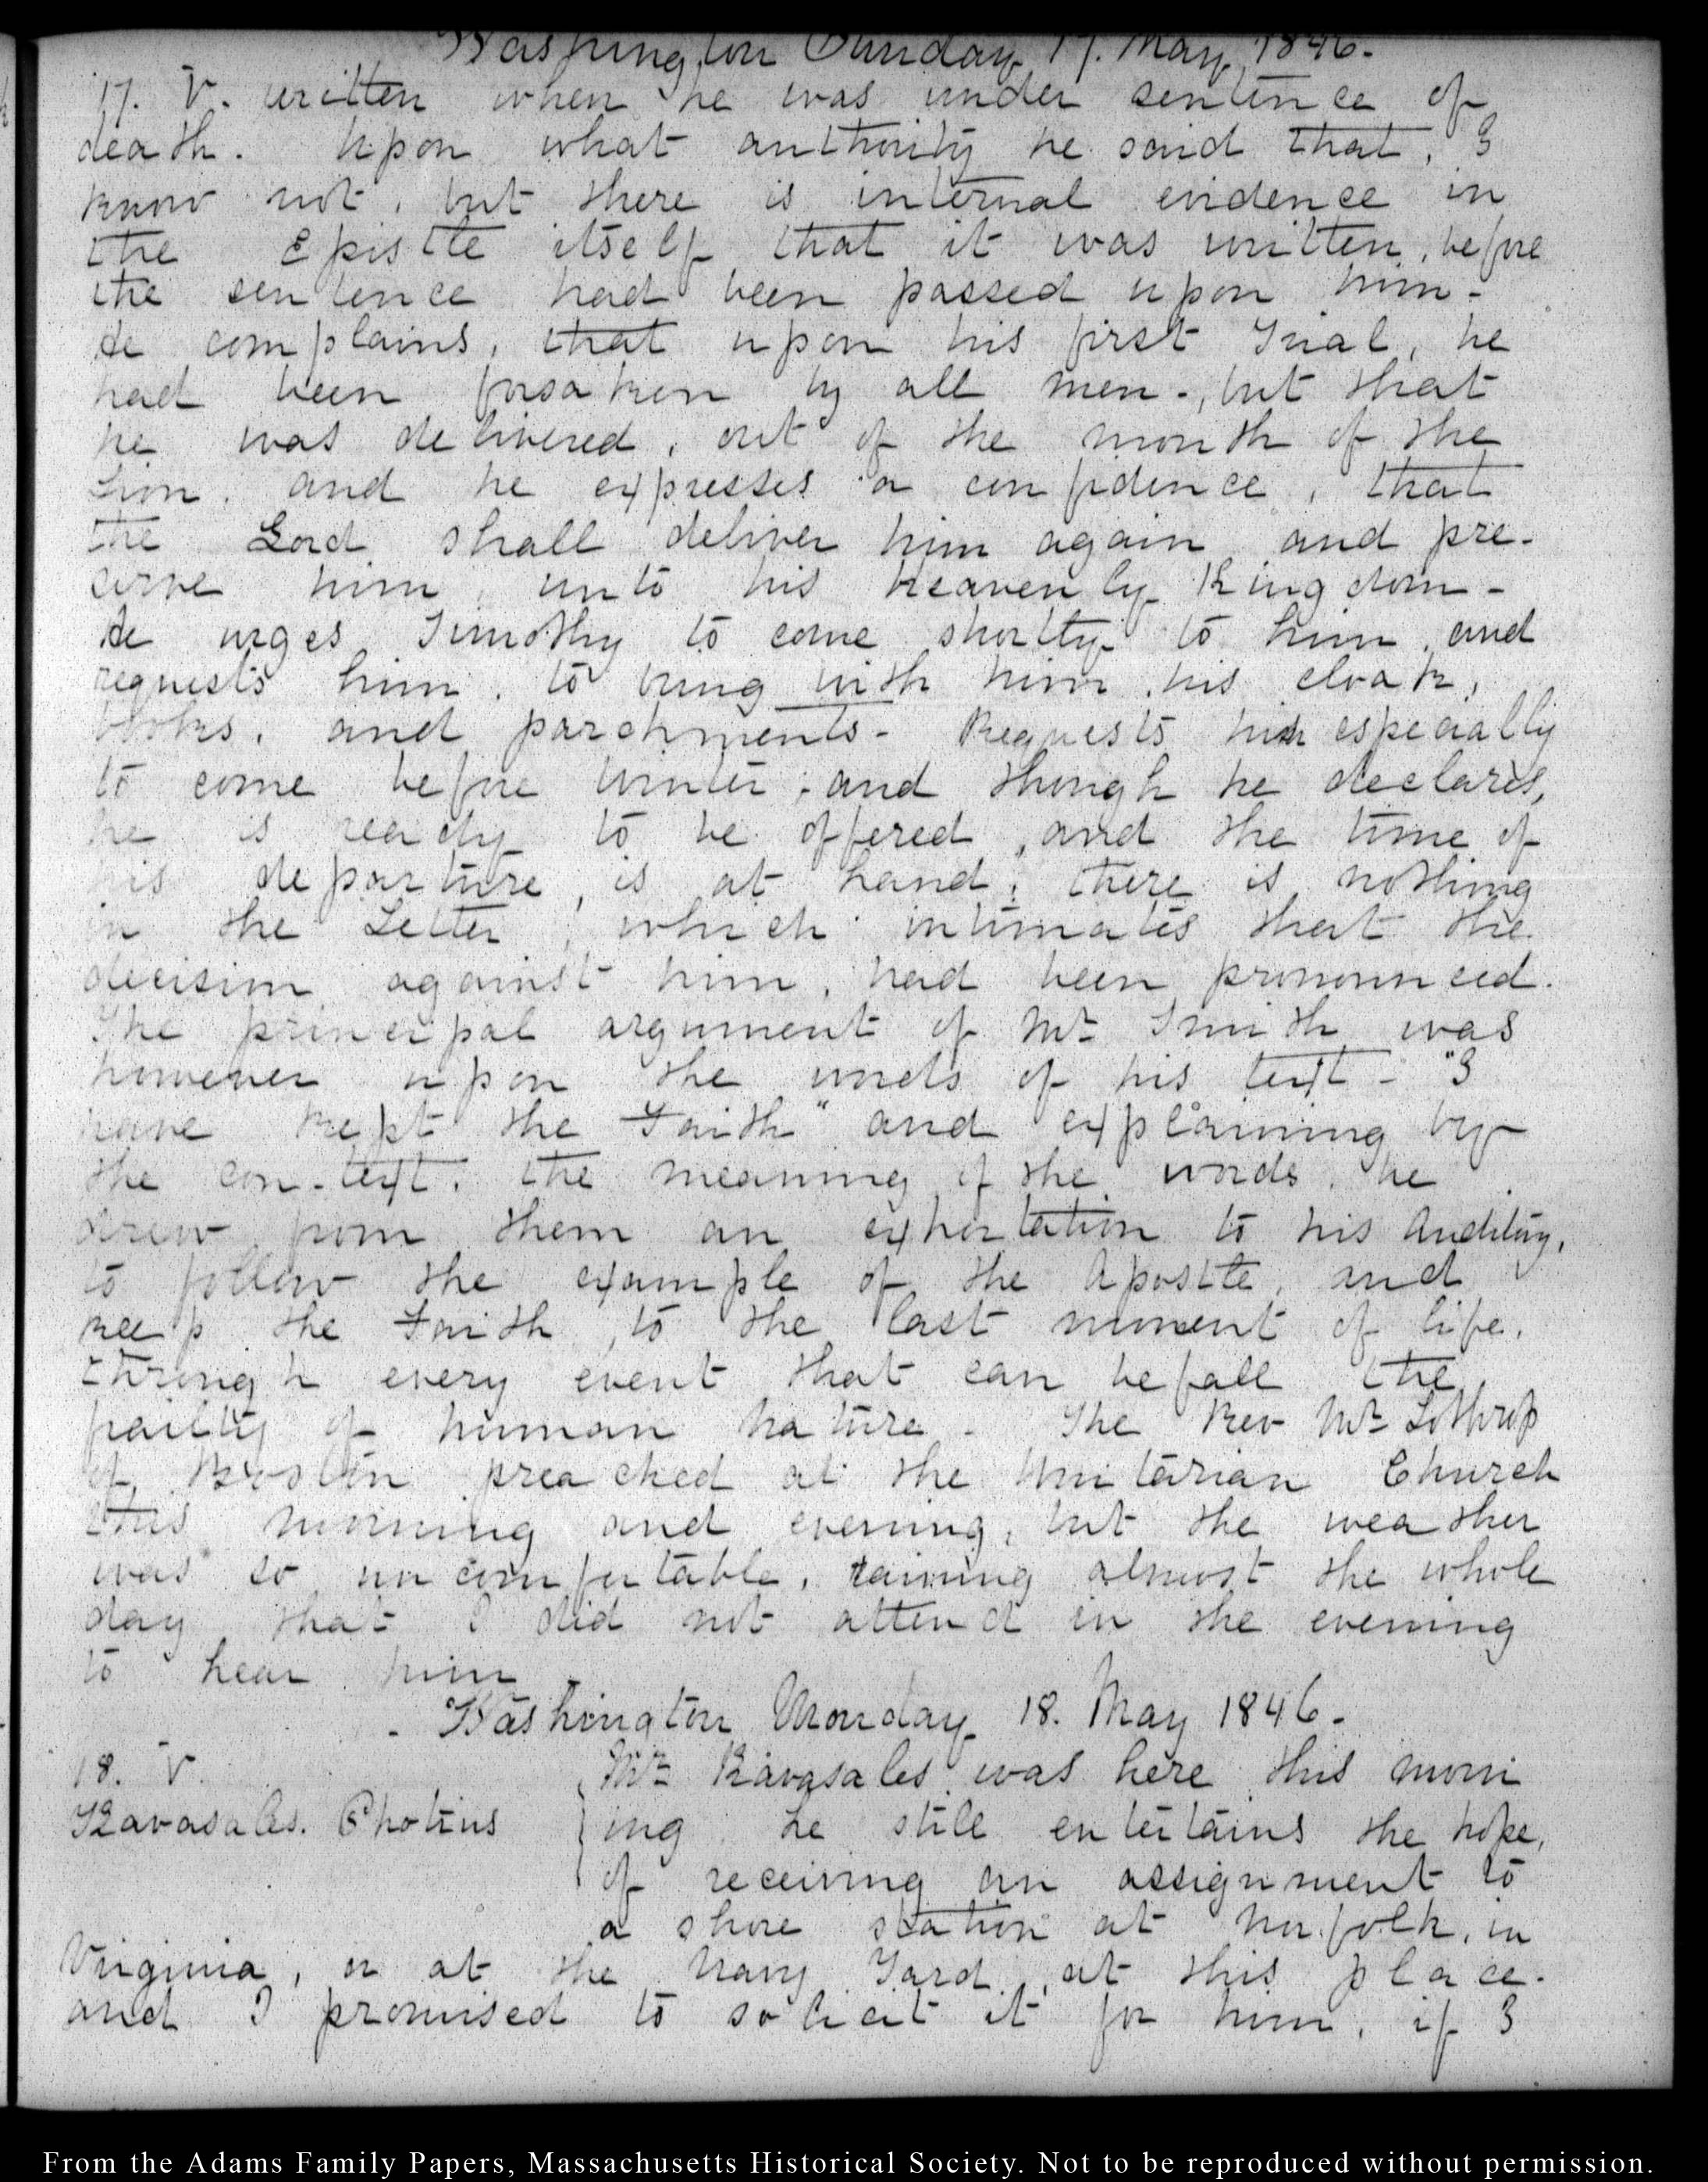 Washington Sunday 17. May 1846.
17. V. written when he was under sentence of
death. Upon what authority he said that, I
know not, but there is internal evidence in
the Epistle itself that it was written, before
the sentence had been passed upon him-
He complains, that upon his first Trial, he
had been forsaken by all men-, but that
he was delivered, out of the mouth of the
Lion, and he expresses a confidence, that
the Lord shall deliver him again and pre-
serve him, unto his heavenly Kingdom-
He urges Timothy to come shortly to him, and
requests him, to bring with him, his cloak,
books, and parchments- Requests him especially
to come before winter; and though he declares,
he is ready to be offered, and the time of
his departure, is at hand; there is nothing
in the Letter, which intimates that the
decision against him, had been pronounced.
The principal argument of Mr Smith was
however upon the words of his text- "I
have kept the Faith" and explaining by
the con-text, the meaning of the words, he
drew from them an exhortation to his auditory,
to follow the example of the Apostle, and
keep the Faith, to the last moment of life,
through every event that can befall the
frailty of human nature- The Rev Mr Lothrop
of Boston preached at the Unitarian Church
this morning and evening, but the weather
was so uncomfortable, raining almost the whole
day that I did not attend in the evening
to hear him-
- Washington Monday 18. May 1846-
18. V. Mr Kavasales was here this morn
Kavasales. Photius ing. He still entertains the hope,
of receiving an assignment to
a shore station at Norfolk, in
Virginia, or at the Navy Yard, at this place-
and I promised to solicit it for him, if I
From the Adams Family Papers, Massachusetts Historical Society. Not to be reproduced without permission.